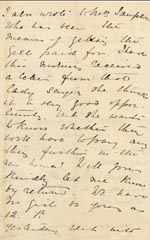 I also wrote to Mrs Sampson
who has seen the
means of getting the
Girl paid for. I have
this morning received
a letter from that
Lady saying she thinks
it a very good oppor-
tunity, but she wants
to know whether they
will have to pay any
thing further in the
Will you
kindly let me know
by return. We have
no girl so young as
12.
Yesterday